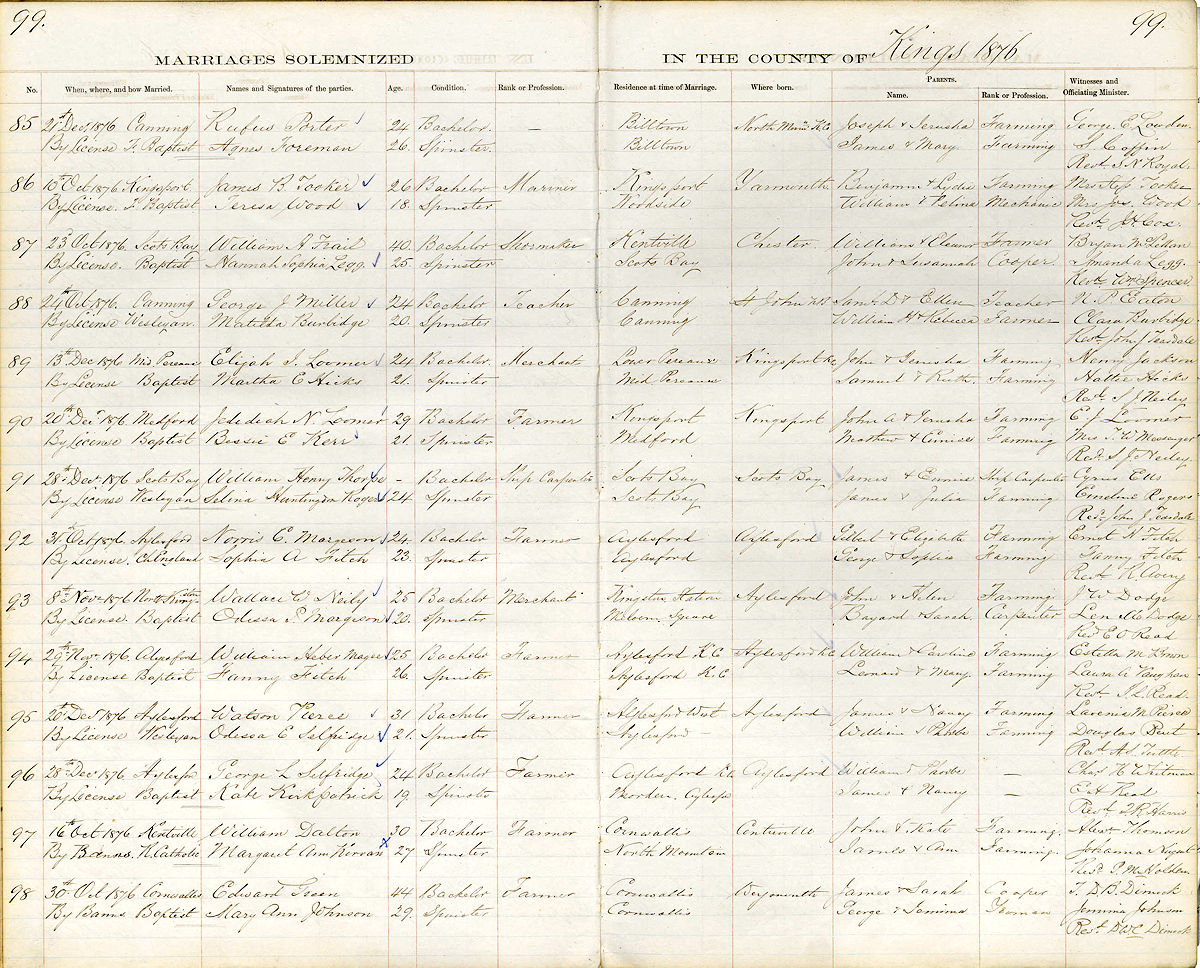 99. 99.
MARRIAGES SOLEMNIZED IN THE COUNTY OF Kings 1876
No. When, where, and how Married. Names and Signatures of the parties. Age. Condition. Rank or Profession. Residence at time of Marriage. Where born. PARENTS. Name. Rank or Profession. Witnesses and Officiating Minister.
85 21st Dec, 1876 Canning Rufus Porter 24 Bachelor. — Billtown North Mount. K.C Joseph & Jerusha Farming George. E. Lowden
By License F. Baptist Agnes Foreman 26. Spinster. Billtown James & Mary. Farming S. Coffin
Revd. S N Royal
86 10th Oct 1876 Kingsport James B. Tooker 26 Bachelor Mariner Kingsport Yarmouth Benjamin & Lydia Farming Mrs Tooker
By License. F. Baptist Teresa Wood 18. Spinster Woodside William & Mechanic Mrs Jos. Wood
Revd. J. H. Cox.
87 23 Oct 1876. Scots Bay William A Trail 40. Bachelor Shoemaker Kentville Chester William & Eleanor Farmer Bryan
By License. Baptist Hannah Sophia Legg. 25 Spinster Scots Bay John & Susannah Cooper Amanda Legg.
Revd. Wm Spencer
88 24th Oct. 1876. Canning George J Miller 24 Bachelor Teacher Canning St John NB Saml. D. & Ellen Teacher N. P. Eaton
By License Wesleyan. Matilda Burbidge 20. Spinster Canning William H & Rebecca Farmer Clara Burbidge
Revd. John J Teasdale
89 13th Dec 1876 Mid Pereaux Elijah I. Loomer 24 Bachelor Merchant Lower Pereaux Kingsport K.C John & Jerusha Farming Henry Jackson
By License Baptist Martha E Hicks 21. Spinster Mid Pereaux Samuel & Ruth. Farming Hattie Hicks
Revd. S J Neiley
90 20th Dec. 1876 Medford Jedediah N. Loomer 29 Bachelor Farmer Kingsport Kingsport John A & Jerusha Farming E J Loomer
By License Baptist Bessie E Kerr 21. Spinster Medford Mathew & Farming Mrs T. W Messenger
Revd. S J. Neiley
91 28th Dec. 1876 Scots Bay William Henry Thorpe - Bachelor Ship Carpenter Scots Bay Scots Bay James & Eunice Ship Carpenter Cyrus Ells
By License Wesleyan Selina Huntington Rogers 24 Spinster Scots Bay James & Julia Farming Emeline Rogers
Revd. John J. Teasdale
92 31st Oct 1876 Aylesford Norris E. Margeson 24. Bachelor Farmer Aylesford Aylesford Gilbert & Elizabeth Farming Ernest W Fitch
By License. Ch England Sophia A Fitch 23. Spinster Aylesford George & Sophia Farming Fanny Fitch
Revd. R Avery
93 8th Nov 1876 North Kingston Wallace W Neily 25 Bachelor Merchant Kingston Station Aylesford John & Helen Farming J W Dodge
By License. Baptist Odessa P. Margison 20. Spinster Melvern Square Bayard & Sarah. Carpenter Len Mc Dodge
Revd E O Read
94 29th Nov 1876 Aylesford William Heber Magee 25 Bachelor Farmer Aylesford K.C Aylesford K.C William & Caroline Farming Estella M Brown
By License Baptist Fanny Fitch 26. Spinster Aylesford K.C Leonard & Mary. Farming Laura A Vaughan
Revd. J. L. Read.
95 20th Decr 1876 Aylesford Watson Pierce 31 Bachelor Farmer Aylesford West Aylesford James & Nancy Farming Lavenia M Pierce
By License Wesleyan Odessa E Selfridge 21. Spinster Aylesford — William & Phoebe Farming Douglas Bent
Revd. A. S. Tuttle
96 28th Decr 1876 Aylesford George L Selfridge 24 Bachelor Farmer Aylesford K.C. Aylesford William & Phoebe — Chas. H Whitman
By License Baptist Kate Kirkpatrick 19. Spinster Morden. Aylesford James & Nancy — E A Read
Revd. Harris
97 16th Oct 1876 Kentville William Dalton 30 Bachelor Farmer Cornwallis Centreville John & Kate Farming. Alexr Thomson
By Banns. R. Catholic Margaret Ann Kirvan 27 Spinster North Mountain James & Ann Farming. Johanna Nugent
Revd P. M Holden
98 30th Oct 1876 Cornwallis Edward Green 44 Bachelor Farmer Cornwallis James & Sarah Cooper T. D B. Dimock
By Banns Baptist Mary Ann Johnson 29. Spinster Cornwallis George & Jemima Jemima Johnson
Revd. D W C Dimock